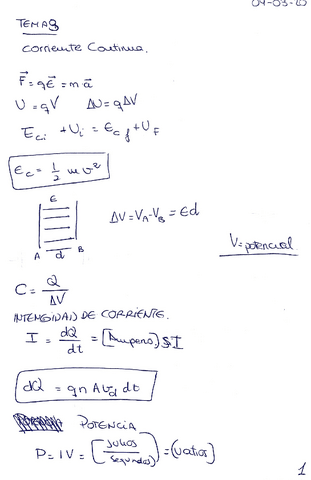 04-03-20
TEMA 3
corriente Continua.
F⃗ = qE⃗ = m a⃗
U = qV ΔU = qΔV
Eci + Ui = Ecf + UF
Ec = 1/2 m v²
E
ΔV = VA - VB = Ed
A d B
V = potencial
C = Q/ΔV
INTENSINDAD DE CORRIENTE.
I = dQ/dt = [Amperio] SI
dQ = qn A vd dt
POTENCIA
P = IV = [Julios/segundos] = (vatios)
1